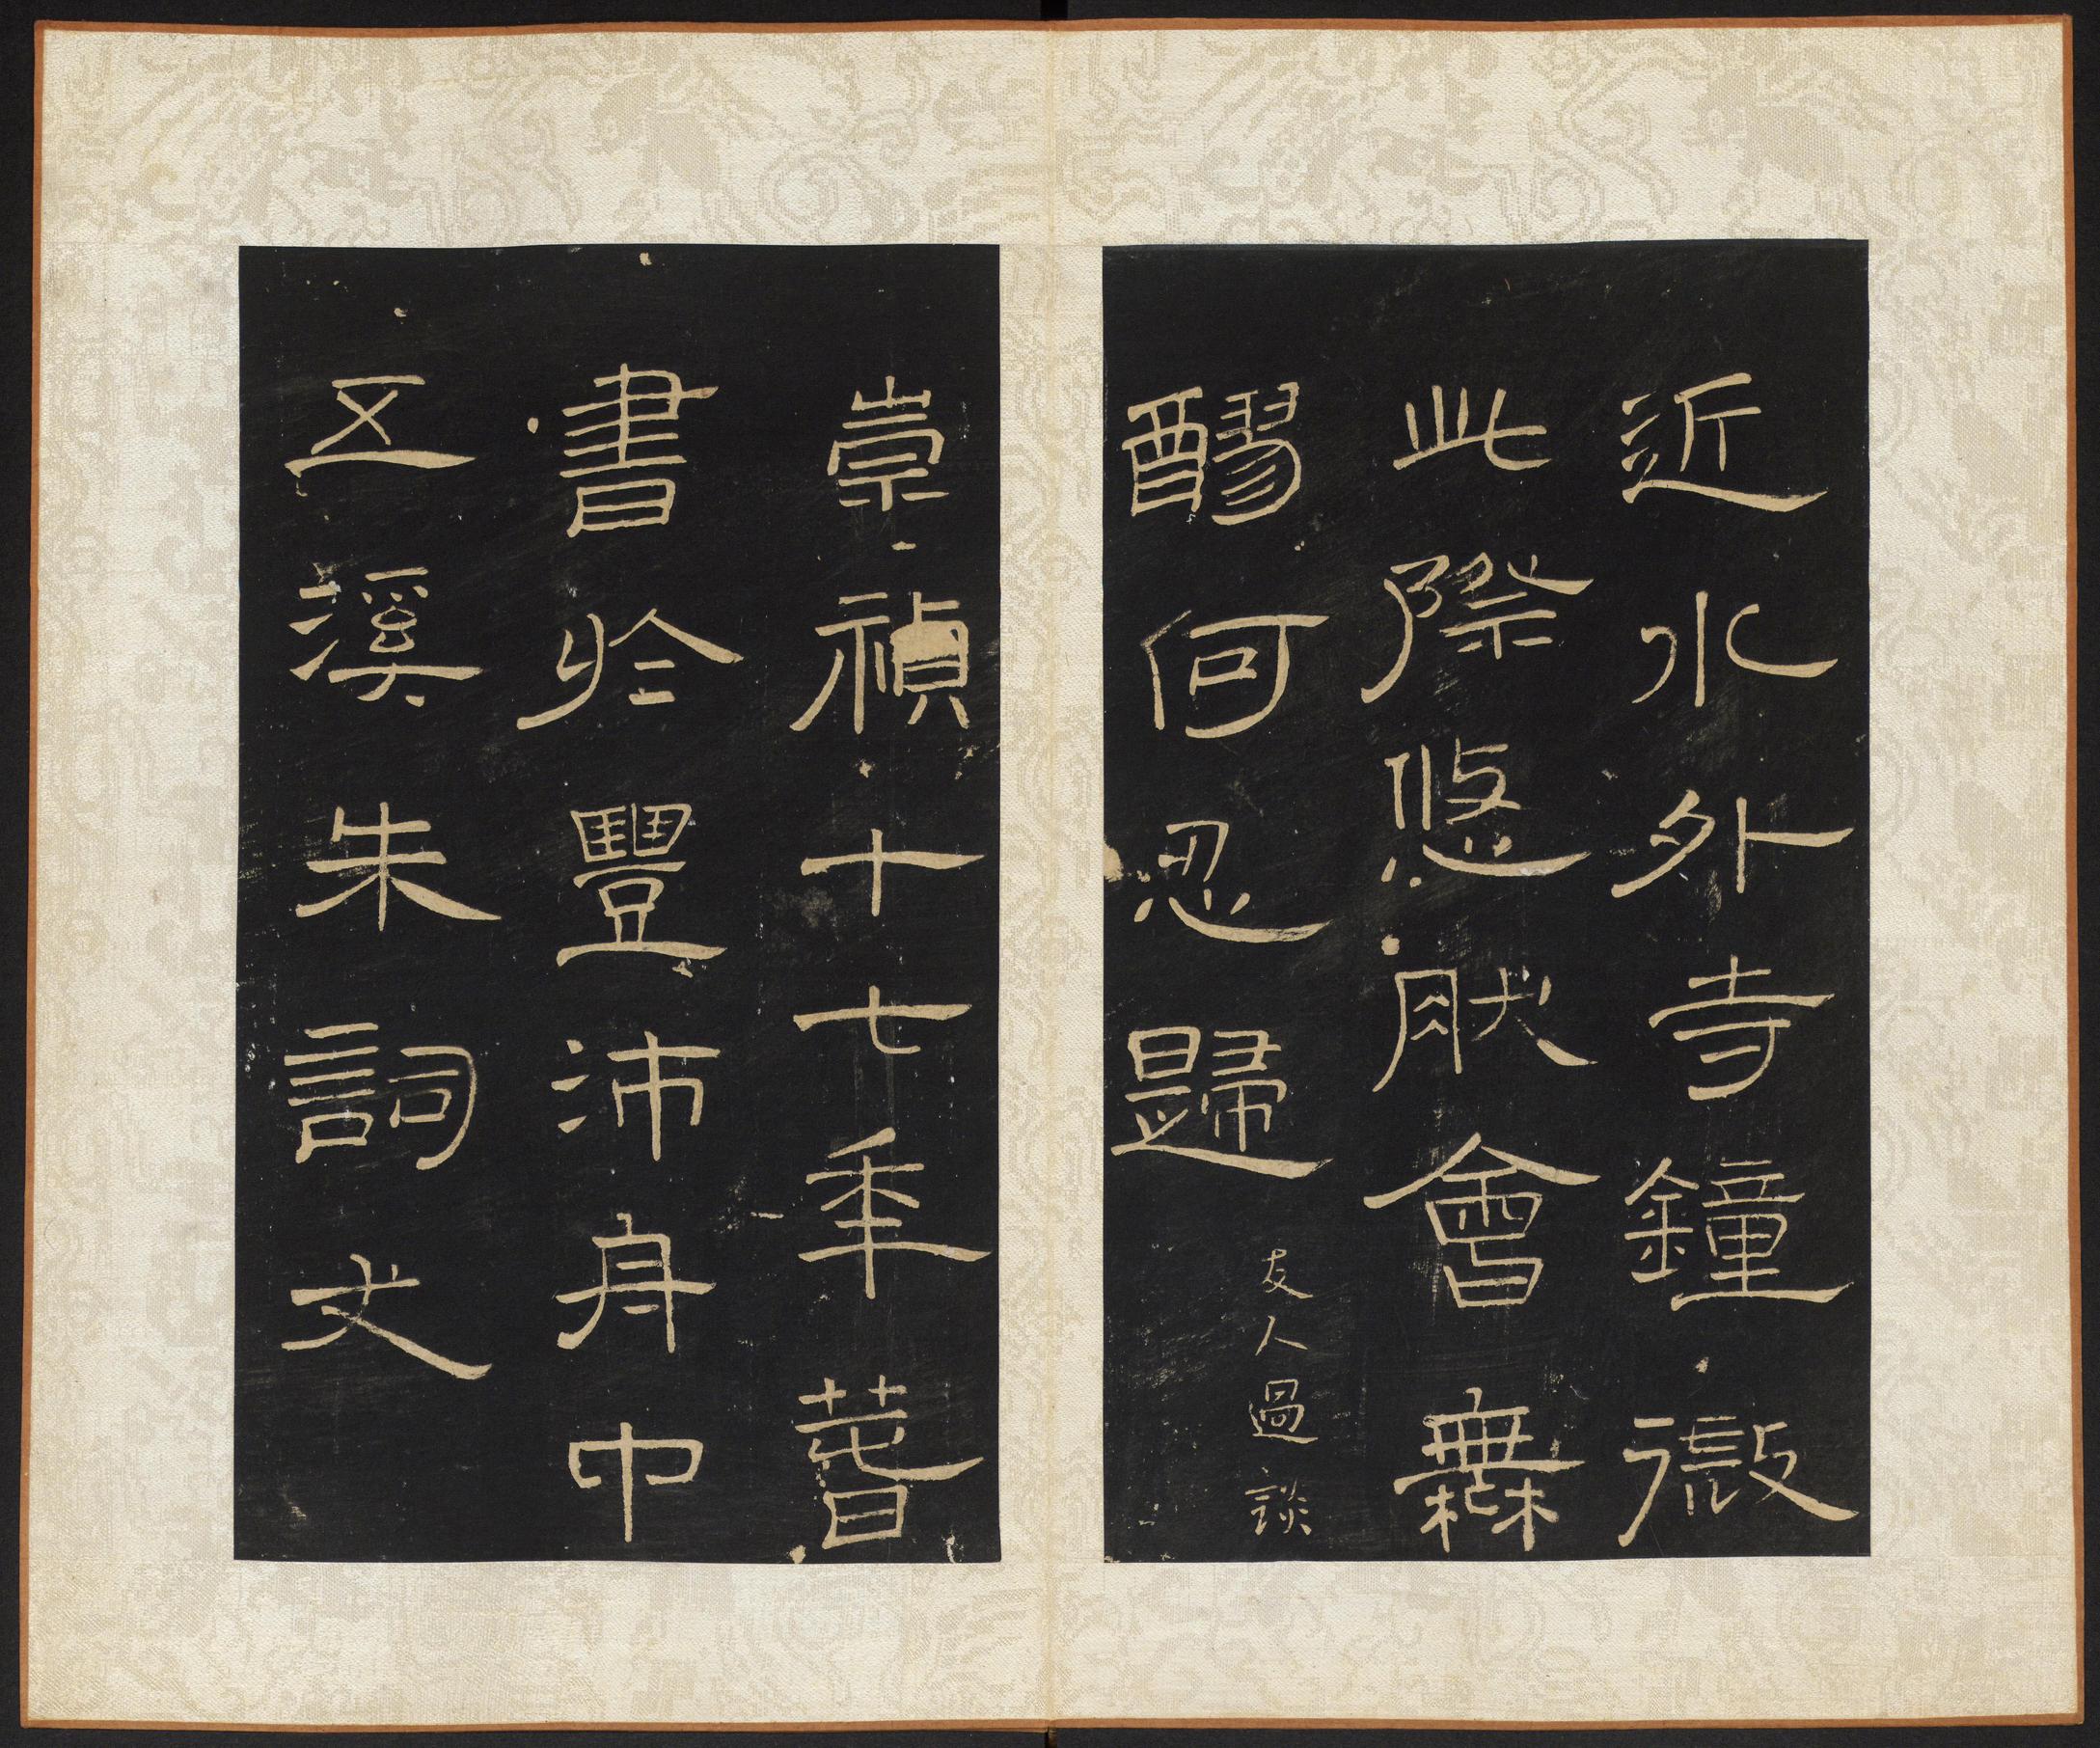 近水外寺鐘微
此際悠肰會橆
醪何忍歸
友人過談
崇禎十七秊萅
書於豐沛舟中
五溪朱詞丈